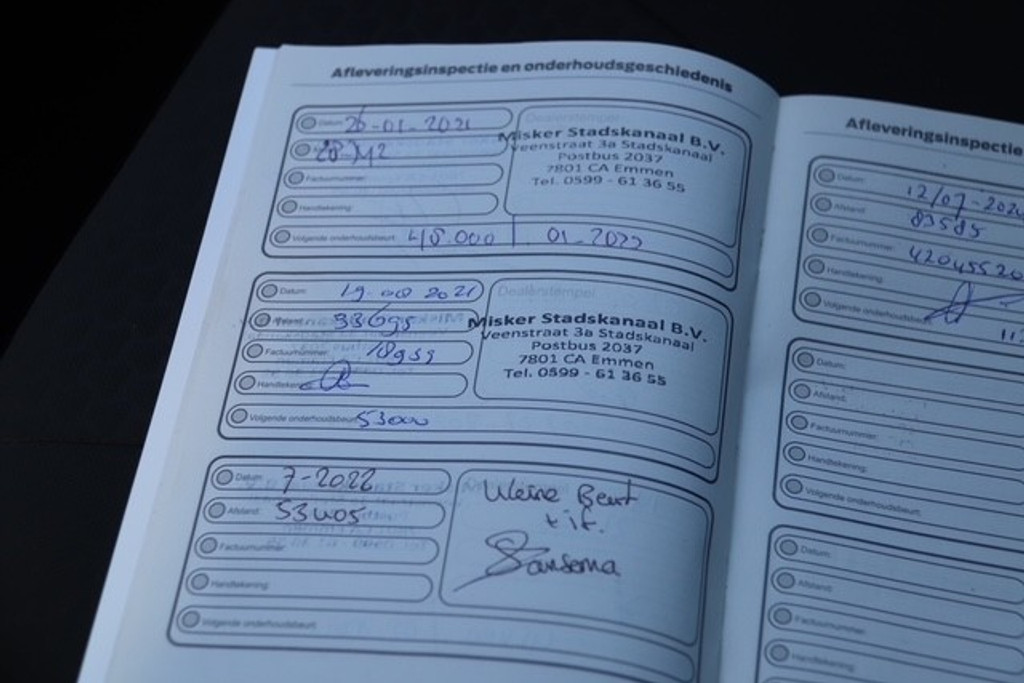 Afleveringsinspectie en onderhoudsgeschiedenis
Datum: 26-01-2021
Dealerstempel
Misker Stadskanaal B.V.
Veenstraat 3a Stadskanaal
Postbus 2037
7801 CA Emmen
Tel. 0599 - 61 36 55
Factuurnummer:
Handtekening:
Volgende onderhoudsbeurt: 48.000 | 01-2022
Datum: 19-08 2021
Afstand: 33695
Factuurnummer: 18959
Handtekening:
Volgende onderhoudsbeurt: 53000
Dealerstempel
Misker Stadskanaal B.V.
Veenstraat 3a Stadskanaal
Postbus 2037
7801 CA Emmen
Tel. 0599 - 61 36 55
Datum: 7-2022
Afstand: 53405
Factuurnummer:
Handtekening:
Volgende onderhoudsbeurt:
Kleine Beurt
Sansema
Afleveringsinspectie
Datum: 12/07-202
Afstand: 83585
Factuurnummer: 42045520
Handtekening:
Volgende onderhoudsbeurt: 11
Datum:
Afstand:
Factuurnummer:
Handtekening:
Volgende onderhoudsbeurt:
Datum:
Afstand:
Factuurnummer:
Handtekening: